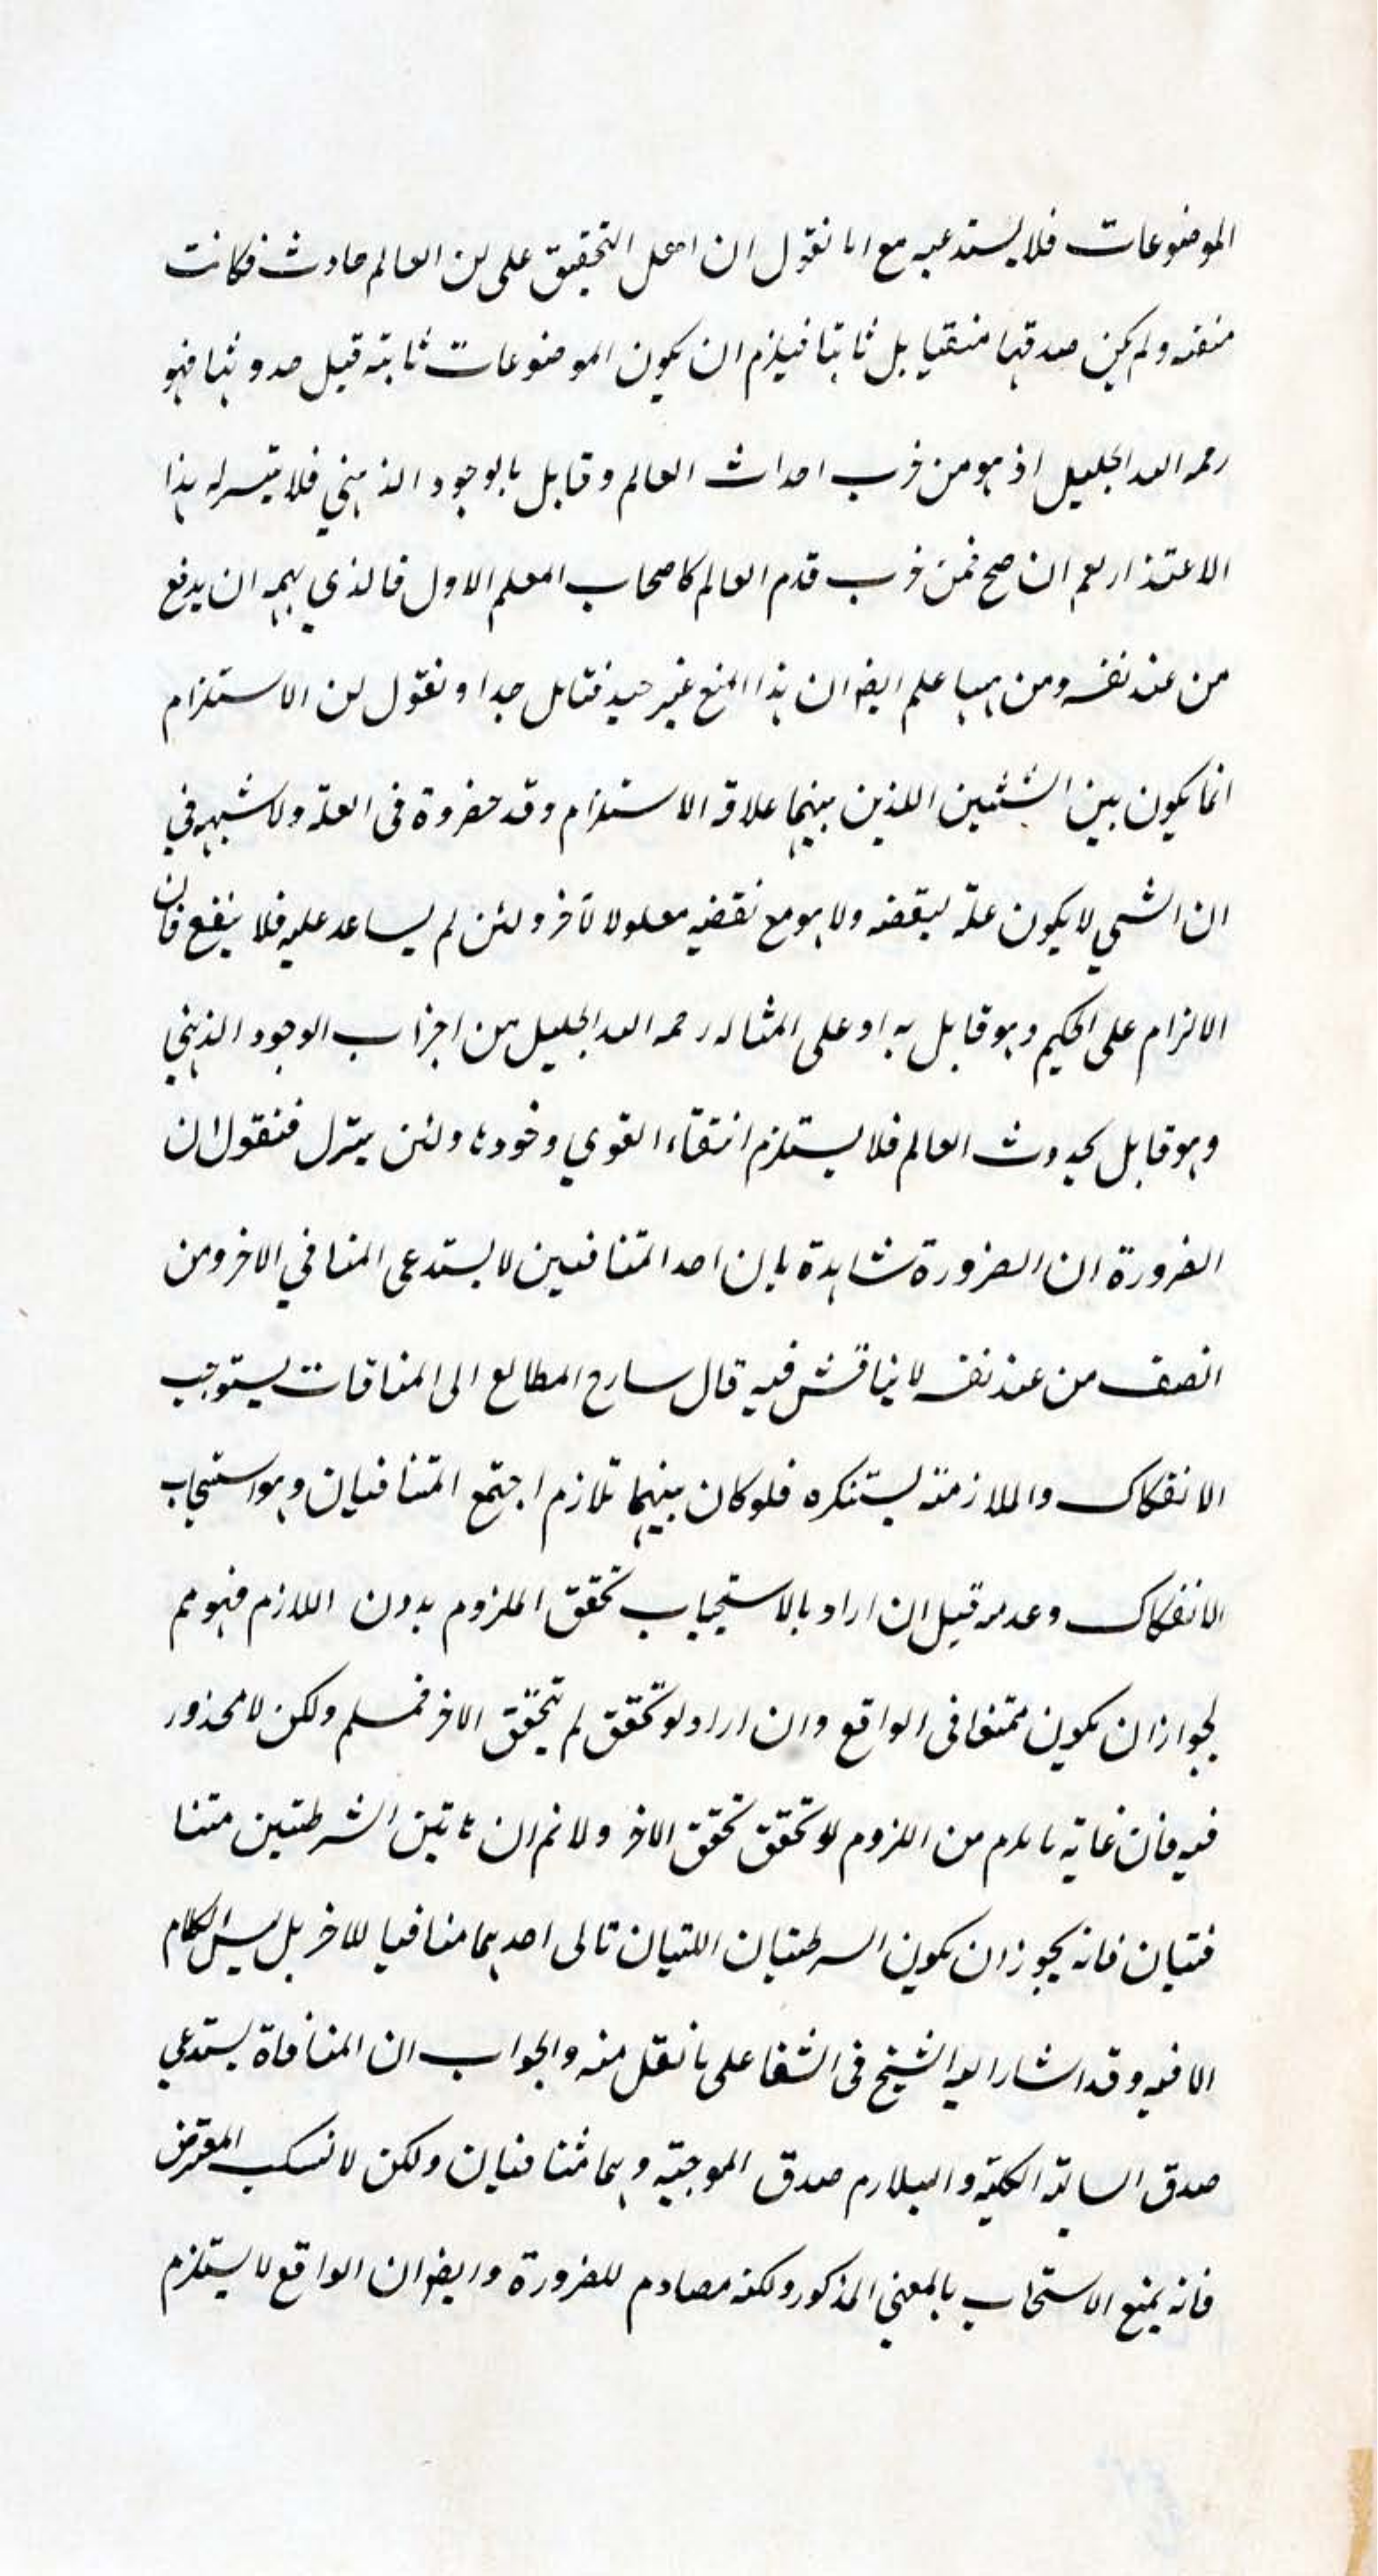 الموضوعات فلا يستدعيه مع انا نقول ان اهل التحقيق على ان العالم حادث فكانت
منفيه ولم يكن صدقها منفيا بل ثابتا فيلزم ان يكون الموضوعات ثابتة قبل حدوثها فهو
رحمه الله الجليل اذ هو من حزب احداث العالم وقايل بالوجود الذهني فلا يتيسر له هذا
الاعتذار نعم ان صح فمن حزب قدم العالم كاصحاب المعلم الاول فالذي يهمه ان يدفع
من عند نفسه ومن ههنا علم ايضا ان هذا المنع غير جيد فتامل جدا ونقول ان الاستلزام
انما يكون بين الشيئين اللذين بينهما علاقة الاستلزام وقد حضروه فى العلة ولا شبهه في
ان الشي لا يكون علة لنقيضه ولا هو مع نقضيه معلولا لآخر ولئن لم يساعد عليه فلا ينفع فان
الالزام على الحكيم وهو قايل به او على امثاله رحمه الله الجليل من احزاب الوجود الذهني
وهو قايل بحدوث العالم فلا يستلزم انتفاء القوي وخودها ولئن يتنزل فنقول ان
الضرورة ان الضرورة شاهدة بان احد المتنافيين لا يستدعى المنافي الاخر ومن
انصف من عند نفسه لا يناقش فيه قال سارح المطالع الى المنافات يستوجب
الانفكاك والملازمة يستنكره فلو كان بينهما تلازم اجتمع المتنافيان وهو استيجاب
الانفكاك وعدمه قيل ان اراد بالاستيجاب تحقق الملزوم بدون اللازم فهو مم
لجواز ان يكون ممتنعا فى الواقع وان اراد لو تحقق لم يتحقق الاخر فمسلم ولكن لا محذور
فيه فان غايه ما يلزم من اللزوم لو تحقق تحقق الاخر ولا نم ان هاتين الشرطيتين متنا
فتيان فانه يجوز ان يكون السرطيتان اللتيان تالى احديهما منافيا للاخر بل ليس الكلام
الا فيه وقد اشار اليه الشيخ فى الشفا على ما نقل منه والجواب ان المنافاة يستدعي
صدق السالبة الكلية والتلازم صدق الموجبة وهما متنافيان ولكن لا نسكب المعترض
فانه يمنع الاستيجاب بالمعني المذكور ولكنه مصادم للضرورة وايضا ان الواقع لا يستلزم